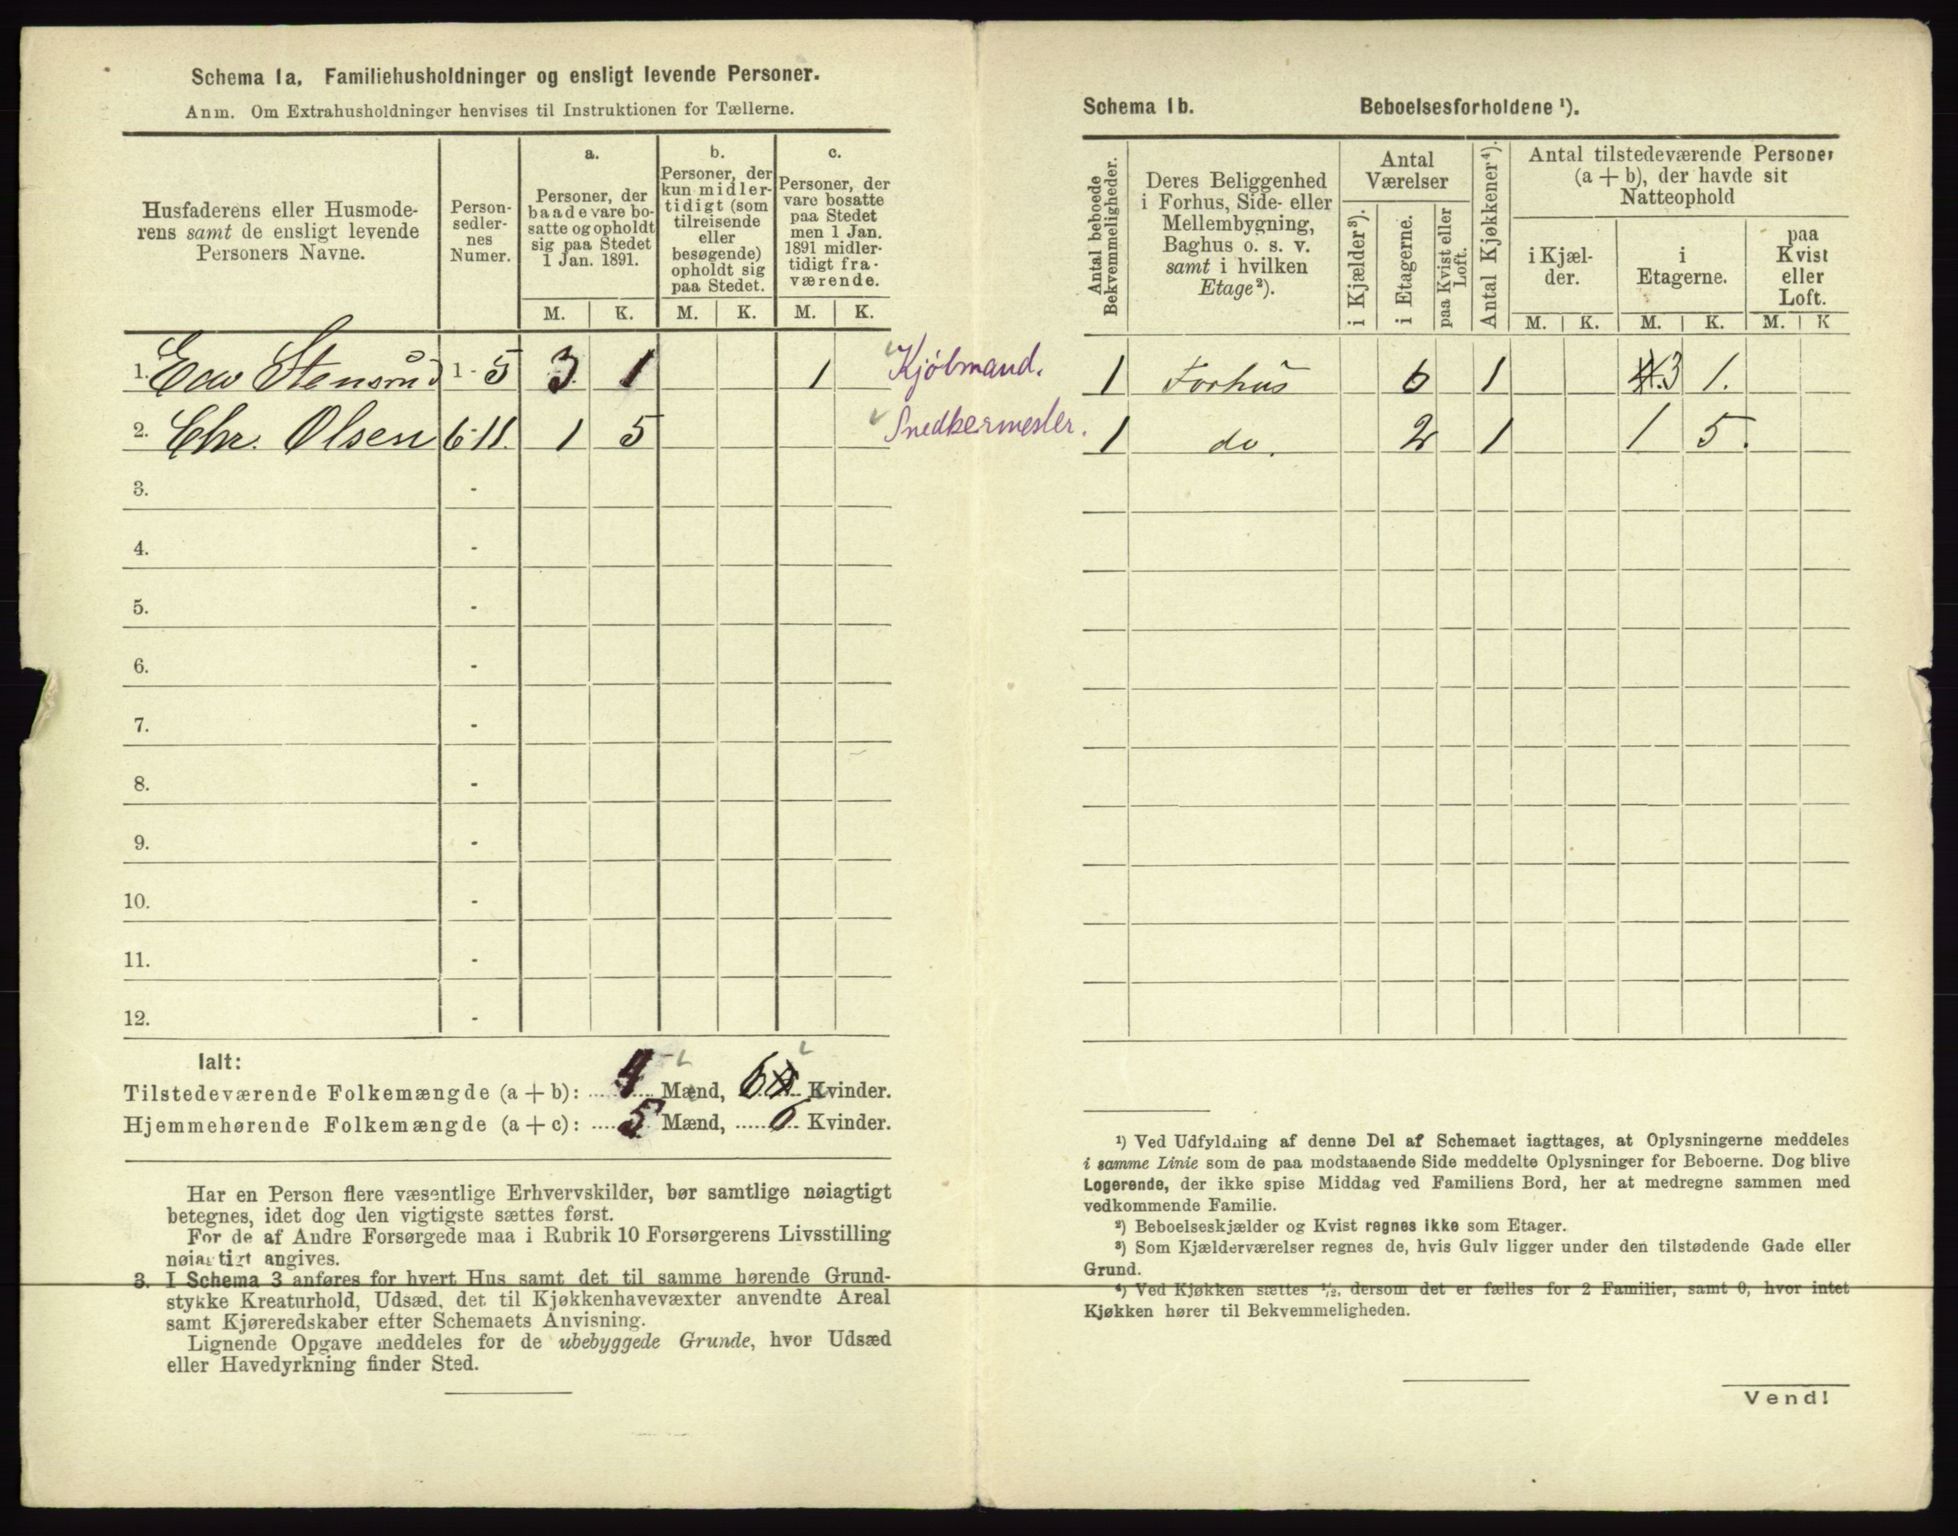 Schema 1a, Familiehusholdninger og ensligt levende Personer.
Anm. Om Extrahusholdninger henvises til Instruktionen for Tællerne.
Husfaderens eller Husmode-
rens samt de ensligt levende
Personers Navne.
Person-
sedler-
nes
Numer.
a.
Personer, der
baade vare bo-
satte og opholdt
sig paa Stedet
1 Jan. 1891.
b.
Personer, der
kun midler-
tidigt (som
tilreisende
eller
besøgende)
opholdt sig
paa Stedet.
c.
Personer, der
vare bosatte
paa Stedet
men 1 Jan.
1891 midler-
tidigt fra-
værende.
M. K. M. K. M. K.
1. Edv Stensrud 1-5 3 1 1 Kjøbmand.
2. Chr. Olsen 6-11. 1 5 Snedkermester.
3. -
4. -
5. -
6. -
7. -
8. -
9. -
10. -
11. -
12. -
Ialt:
Tilstedeværende Folkemængde (a + b): 4 Mænd, 6 Kvinder.
Hjemmehørende Folkemængde (a + c): 5 Mænd, 6 Kvinder.
Har en Person flere væsentlige Erhvervskilder, bør samtlige nøiagtigt
betegnes, idet dog den vigtigste sættes først.
For de af Andre Forsørgede maa i Rubrik 10 Forsørgerens Livsstilling
nøiagtigt angives.
3. I Schema 3 anføres for hvert Hus samt det til samme hørende Grund-
stykke Kreaturhold, Udsæd, det til Kjøkkenhavevæxter anvendte Areal
samt Kjøreredskaber efter Schemaets Anvisning.
Lignende Opgave meddeles for de ubebyggede Grunde, hvor Udsæd
eller Havedyrkning finder Sted.
Schema 1b. Beboelsesforholdene ¹).
Antal beboede
Bekvemmeligheder.
Deres Beliggenhed
i Forhus, Side- eller
Mellembygning,
Baghus o. s. v.
samt i hvilken
Etage²).
Antal
Værelser
i Kjælder³).
i Etagerne.
paa Kvist eller
Loft.
Antal Kjøkkener⁴).
Antal tilstedeværende Personer
(a + b), der havde sit
Natteophold
i Kjæl-
der.
i
Etagerne.
paa
Kvist
eller
Loft.
M. K. M. K. M. K
1 Forhus 6 1 3 1.
1 do. 2 1 1 5.
¹) Ved Udfyldning af denne Del af Schemaet iagttages, at Oplysningerne meddeles
i samme Linie som de paa modstaaende Side meddelte Oplysninger for Beboerne. Dog blive
Logerende, der ikke spise Middag ved Familiens Bord, her at medregne sammen med
vedkommende Familie.
²) Beboelseskjælder og Kvist regnes ikke som Etager.
³) Som Kjælderværelser regnes de, hvis Gulv ligger under den tilstødende Gade eller
Grund.
⁴) Ved Kjøkken sættes ½, dersom det er fælles for 2 Familier, samt 0, hvor intet
Kjøkken hører til Bekvemmeligheden.
Vend!